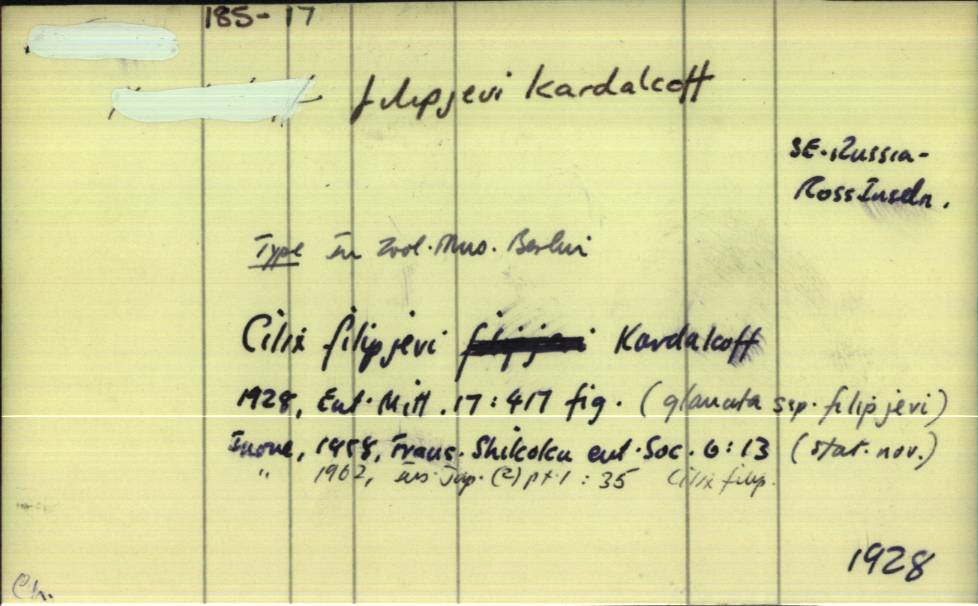 185-17
filipjevi Kardakoff
SE-Russia-
Ross Inseln.
Type in Zool. Mus. Berlin
Cilix filipjevi filipjevi Kardakoff
1928, Ent. Mitt. 17: 417 fig. (glaucata ssp. filipjevi)
Inoue, 1958, Trans. Shikoku ent. Soc. 6: 13 (stat. nov.)
" 1962, Ins. Jap. (2) pt. 1: 35 Cilix filip.
1928
Ch.